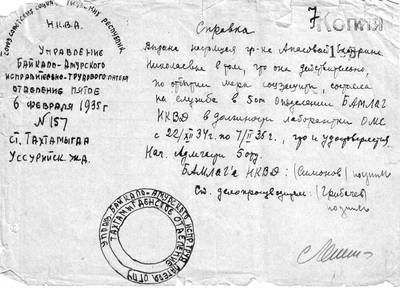 7
Копия
Союз Советских Социал. Республик
Н.К.В.Д.
Управление
Байкало-Амурского
исправительно-трудового лагеря
отделение пятое
6 февраля 1935г
№157
ст. Тахтамыгда
Уссурийск. жд.
Справка
Выдана настоящая гр-ке
Николаевне в том, что она действительно,
по отбытии меры соцзащиты, состояла
на службе в 5ом отделении БАМЛАГ
НКВД в должности лаборантки ОЛС
с 22/XII 34г. по 7/II 35г., что и удостоверяется
Нач. Адмчасти 5 отд.
БАМЛАГ'а НКВД: (Симонов) подпись
Ст. делопроизводитель: (Грибачев)
подпись
Управл. Байкало-Амурского испр. труд. лагеря ОГПУ
Тахтамыгдинское отделение